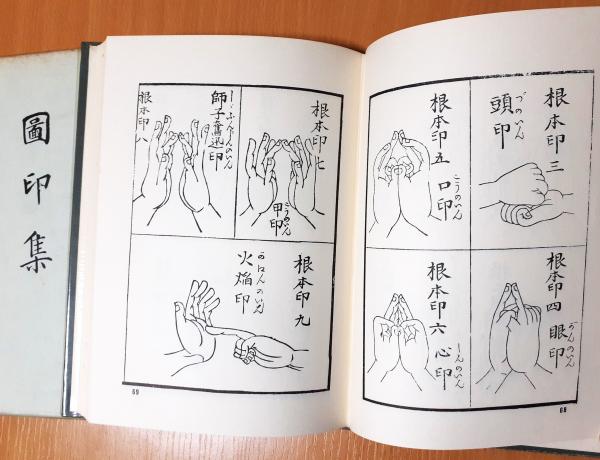 圖印集
根本印三
頭印
づのいん
根本印四
眼印
がんのいん
根本印五
口印
こうのいん
根本印六
心印
しんのいん
68
根本印七
甲印
こうのいん
根本印八
師子奮迅印
しゝふんじんのいん
根本印九
火焔印
かえんのいん
69